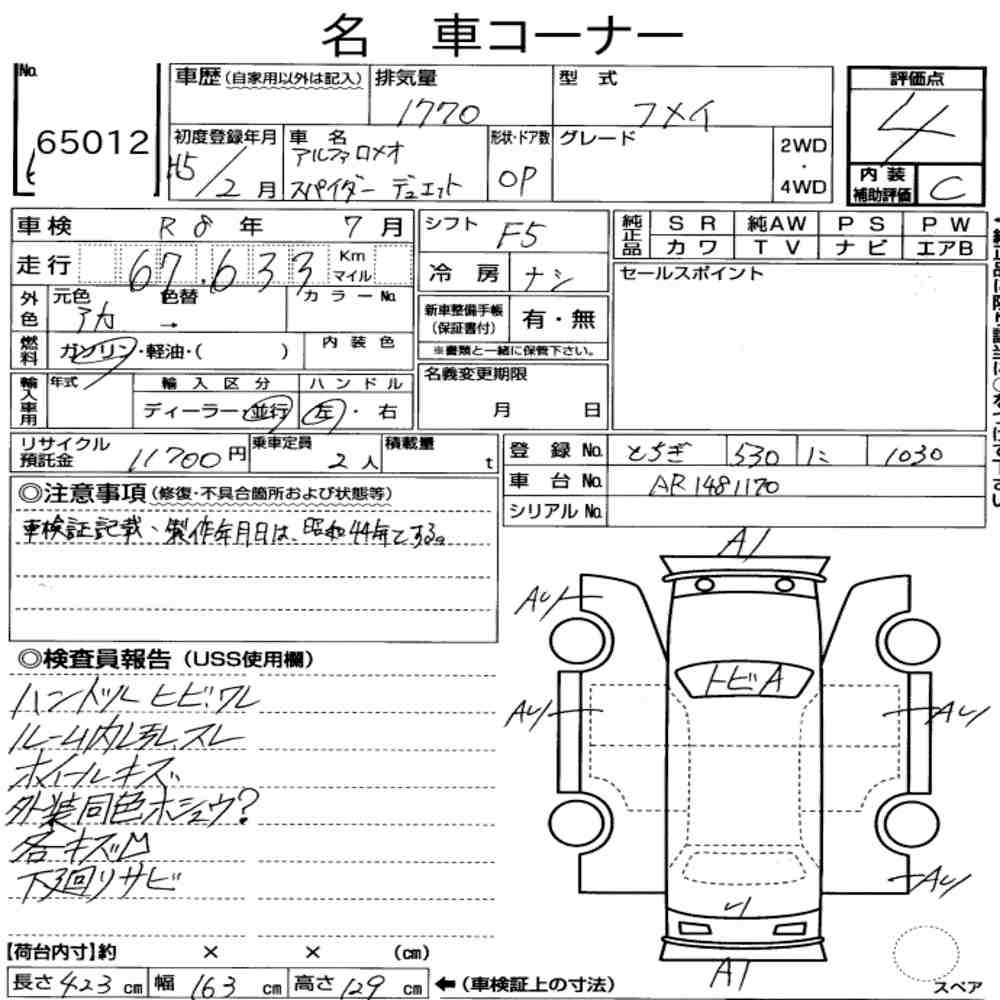 名 車コーナー
No. 65012
車歴 (自家用以外は記入)
排気量 1770
型 式 フメイ
評価点 4
初度登録年月 H5/2月
車 名 アルファロメオ
スパイダー デュエット
形状・ドア数 OP
グレード
2WD
・
4WD
内装
補助評価 C
車検 R 8 年 7 月
走行 67.633 Km
マイル
外色 元色 アカ 色替 →
カラーNo.
燃料 ガソリン・軽油・( )
内装色
輸入車用 年式
輸入区分 ディーラー・並行
ハンドル 左・右
シフト F5
冷房 ナシ
新車整備手帳
(保証書付) 有・無
※書類と一緒に保管下さい。
名義変更期限
月 日
純正品 SR 純AW PS PW
カワ TV ナビ エアB
セールスポイント
リサイクル
預託金 11700円
乗車定員 2人
積載量 t
登録No. とちぎ 530 に 1030
車台No. AR1481170
シリアルNo.
◎注意事項 (修復・不具合箇所および状態等)
車検証記載、製作年月日は、昭和44年とする。
◎検査員報告 (USS使用欄)
ハンドル ヒビ・ワレ
ルーム内 スレ
ホイールキズ
外装同色ホシュウ?
各キズ凹
下廻りサビ
A1
トビA
A1
【荷台内寸】約 × × (cm)
長さ 423 cm 幅 163 cm 高さ 129 cm ←(車検証上の寸法)
スペア